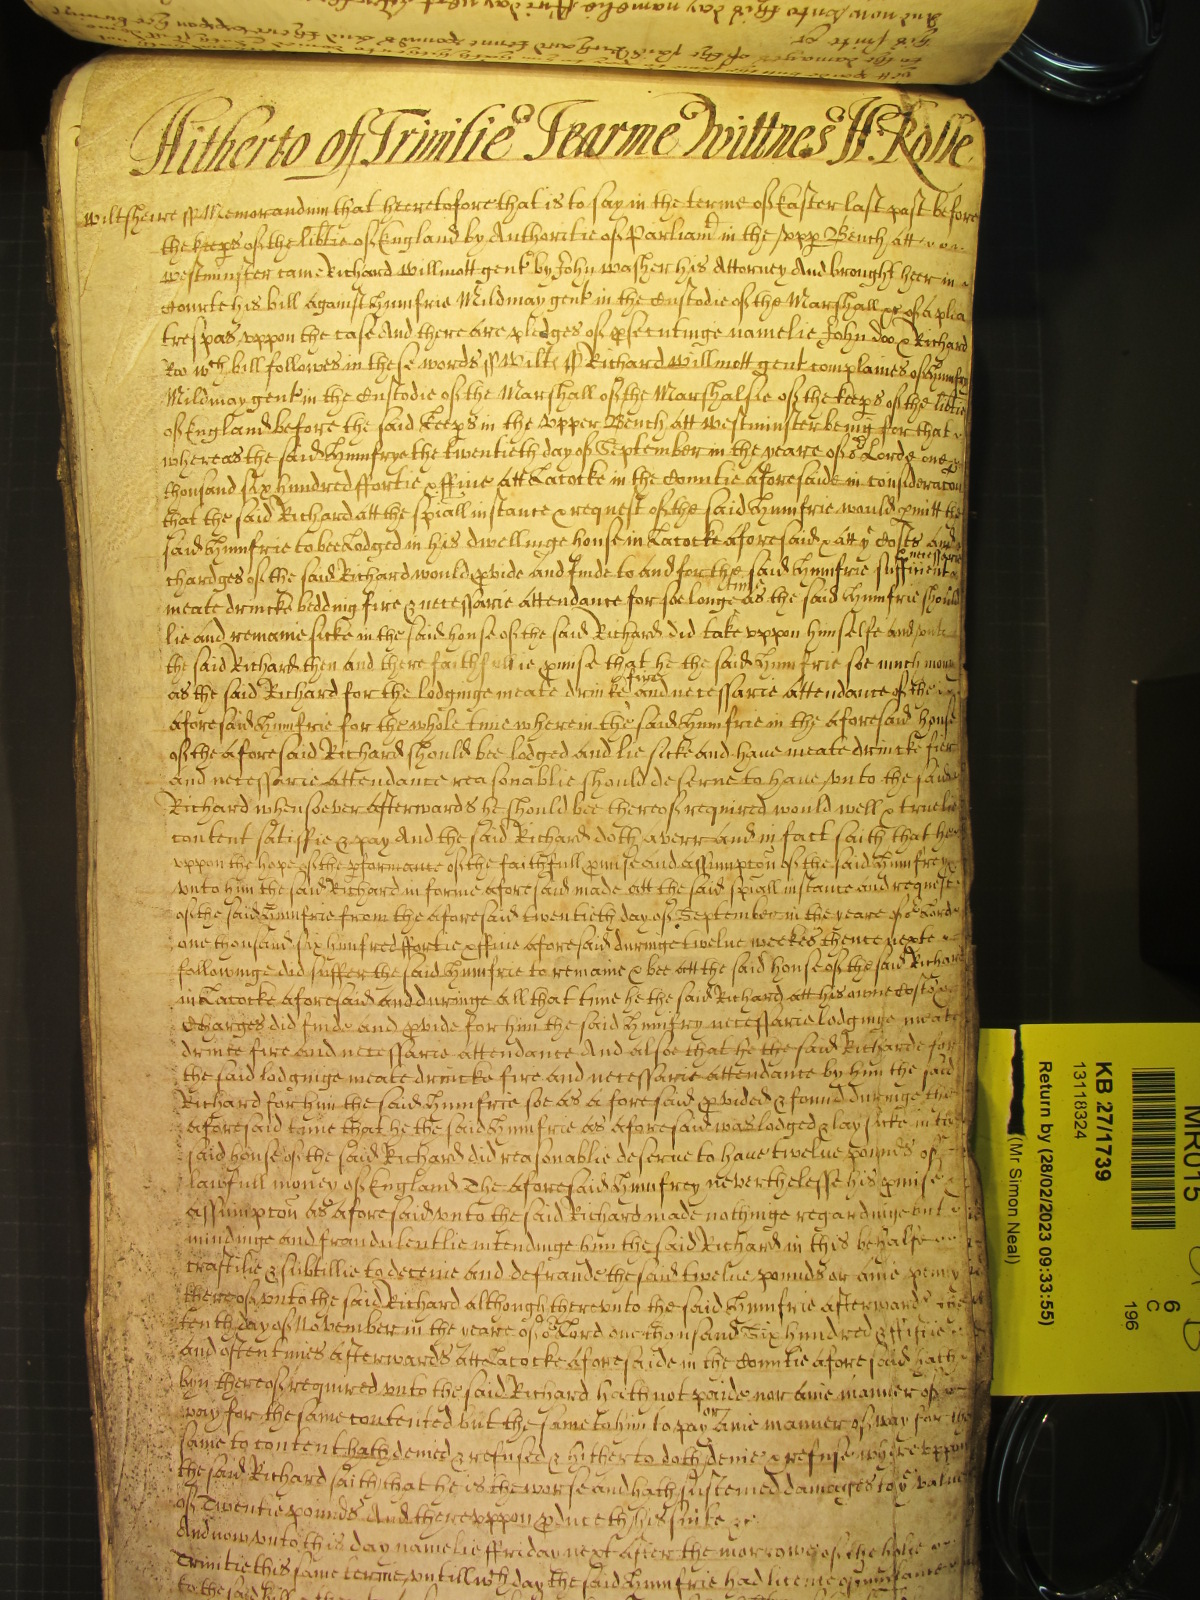 Hitherto of Trinitie Tearme Wittnes H: Rolle
Wiltsheire ss Memorandum that heeretofore that is to say in the terme of Easter last past before
the keeps of the libtie of England by Authoritie of Parliamt in the vpp Bench att
Westminster came Richard Willmott gent by John Washer his Attorney And brought heer in
Courte his bill against Humfrie Mildmay gent in the Custodie of the Marshall &c of a plea
trespas vppon the case And there are pledges of psecutinge namelie John doo & Richard
Roo wch bill followes in these words ss Wilt ss Richard Willmott gent complaines of Humfry
Mildmay gent in the Custodie of the Marshall of the Marshalsie of the keeps of the libtie
of England before the said keeps in the vpper Bench att Westminster being for that
whereas the said Humfrye the twentieth day of September in the yeare of or Lorde one
thousand six hundred ffortie & ffiue att Lacocke in the Countie aforesaide in consideracon
that the said Richard att the spiall instance & request of the said Humfrie would pmitt the
said Humfrie to bee Lodged in his dwellinge house in Lacocke aforesaid & att ye Costs and
chardges of the said Richard would pvide and finde to and for the said Humfrie sufficient
necessarie
meate drincke bedding fire & necessarie attendance for soe longe time as the said Humfrie should
lie and remaine sicke in the said house of the said Richard did take vppon himselfe and vnto
the said Richard then and there faithfullie pmise that he the said Humfrie soe much mony
as the said Richard for the lodginge meate drinke fire and necessarie attendance of the
aforesaid Humfrie for the whole time wherein the said Humfrie in the aforesaid house
of the aforesaid Richard should bee lodged and lie sicke and have meate drincke fier
and necessarie attendance reasonablie should deserue to haue vnto the said
Richard whensoever afterwards he should bee thereof required would well & truelie
content satisfie & pay And the said Richard doth averr and in fact saith that he
vppon the hope of the pformance of the faithfull pmise and assumpcon of the said Humfrey
vnto him the said Richard in forme aforesaid made att the said spiall instance and request
of the said Humfrie from the aforesaid twentieth day of September in the yeare of or Lord
one thousand six hunfred ffortie & ffiue aforesaid duringe twelue weekes thence nexte
followinge did suffer the said Humfrie to remaine & bee att the said house of the said Richard
in Lacocke aforesaid and duringe all that time he the said Richard att his owne Costs &
Charges did finde and pvide for him the said Humfry necessarie lodginge meate
drincke fire and necessarie attendance And alsoe that he the said Richarde for
the said lodginge meate drincke fire and necessarie attendance by him the said
Richard for him the said Humfrie soe as aforesaid pvided & found duringe the
aforesaid time that he the said Humfrie as aforesaid was lodged & lay sicke in the
said house of the said Richard did reasonablie deserue to have twelue pounds of
lawfull money of England The aforesaid Humfrey neverthelesse his pmise &
assumpcon as aforesaid vnto the said Richard made nothinge regardinge but
mindinge and fraudulentlie intendinge him the said Richard in this behalfe
craftilie & subtillie to deceiue and defraude the said twelue pounds or anie penny
thereof vnto the said Richard although therevnto the said Humfrie afterwards the
tenth day of November in the yeare of or Lord one thousand Six hundred & ffiftie
and often times afterwards att Lacocke aforesaide in the Countie aforesaid hath
byn thereof required vnto the said Richard hath not paide nor anie manner of
way for the same contented but the same to him to pay or anie manner of way for the
same to content hath denied & refused & hitherto doth denie & refuse whervppon
the said Richard saith that he is the worse and hath susteined damages to ye value
of Twentie pounds And therevppon pduceth his suite &c
And now vnto this day namelie ffriday next after the morrowe of the holie
Trinitie this same terme vntill wch day the said Humfrie had licence
KB 27/1739
13118324
Return by (28/02/2023 09:33:55)
(Mr Simon Neal)
MR015
6
C
196